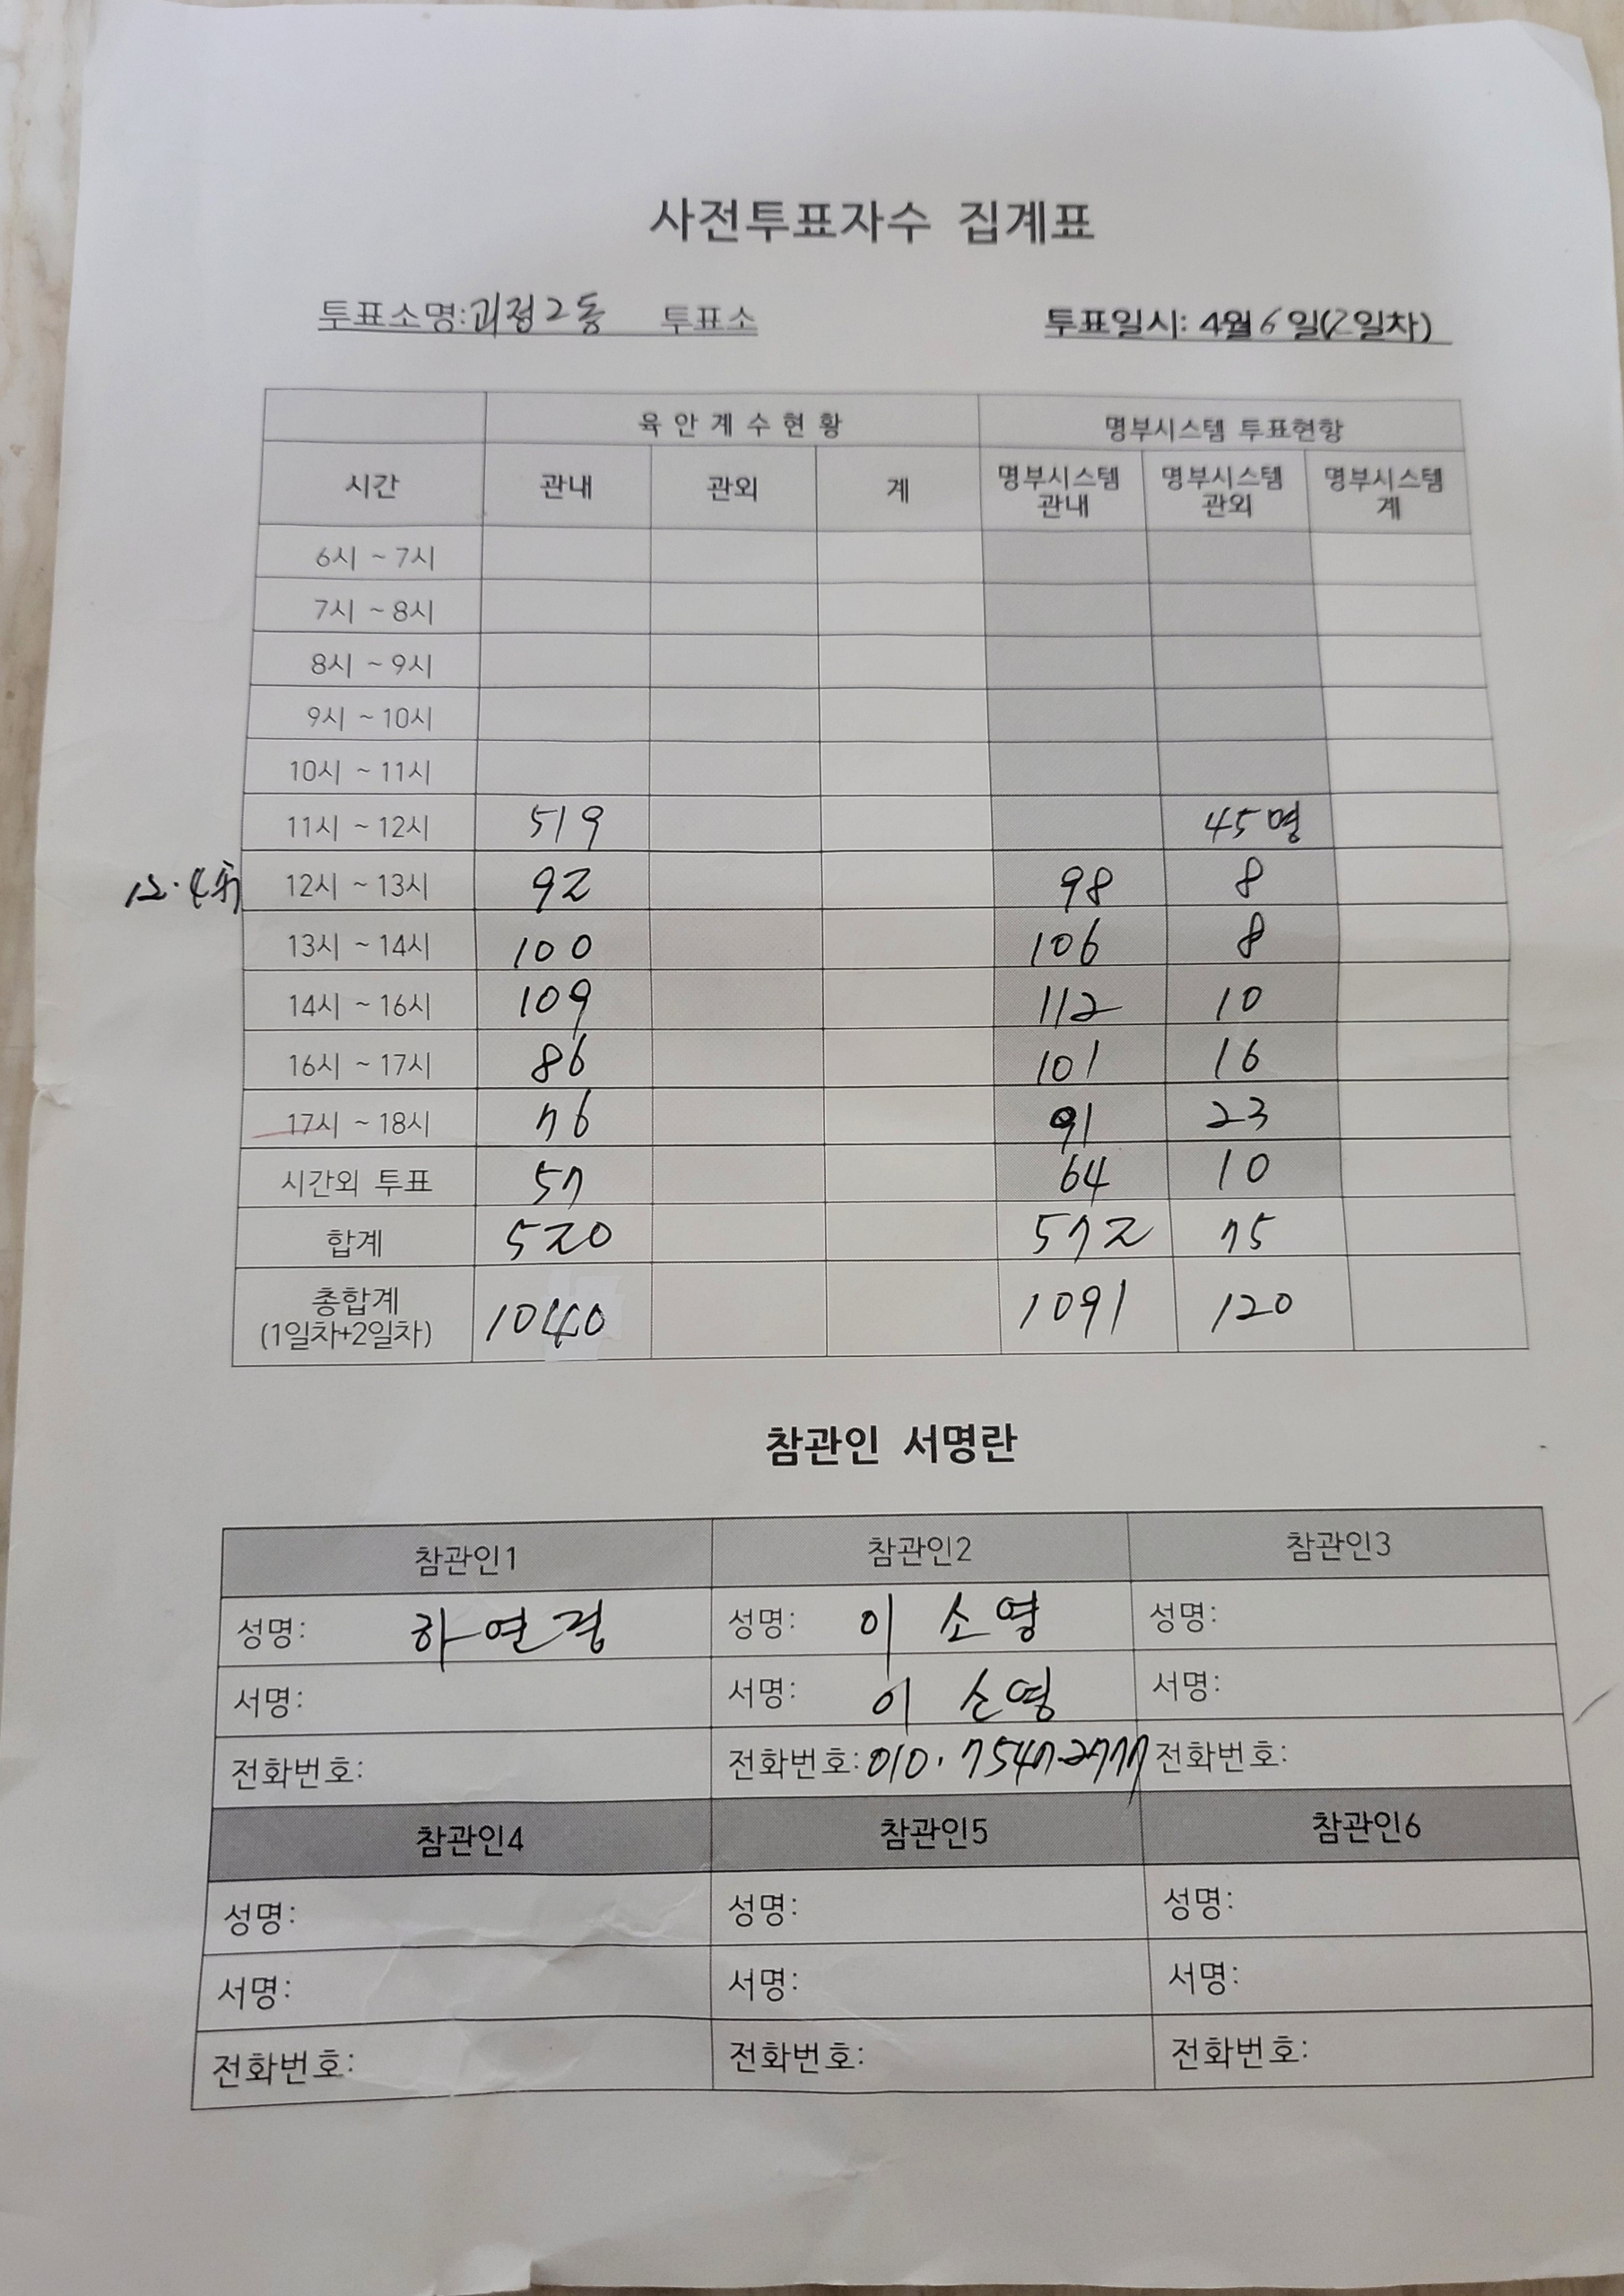 사전투표자수 집계표
투표소명: 괴정2동 투표소 투표일시: 4월 6일(2일차)
육 안 계 수 현 황 명부시스템 투표현황
시간 관내 관외 계 명부시스템 관내 명부시스템 관외 명부시스템 계
6시 ~ 7시
7시 ~ 8시
8시 ~ 9시
9시 ~ 10시
10시 ~ 11시
11시 ~ 12시 519 45명
12시 ~ 13시 92 98 8
13시 ~ 14시 100 106 8
14시 ~ 16시 109 112 10
16시 ~ 17시 86 101 16
17시 ~ 18시 76 91 23
시간외 투표 57 64 10
합계 520 572 75
총합계
(1일차+2일차) 1040 1091 120
참관인 서명란
참관인1 참관인2 참관인3
성명: 하연경 성명: 이 소영 성명:
서명: 서명: 이 소영 서명:
전화번호: 전화번호: 010. 7547-2777 전화번호:
참관인4 참관인5 참관인6
성명: 성명: 성명:
서명: 서명: 서명:
전화번호: 전화번호: 전화번호: